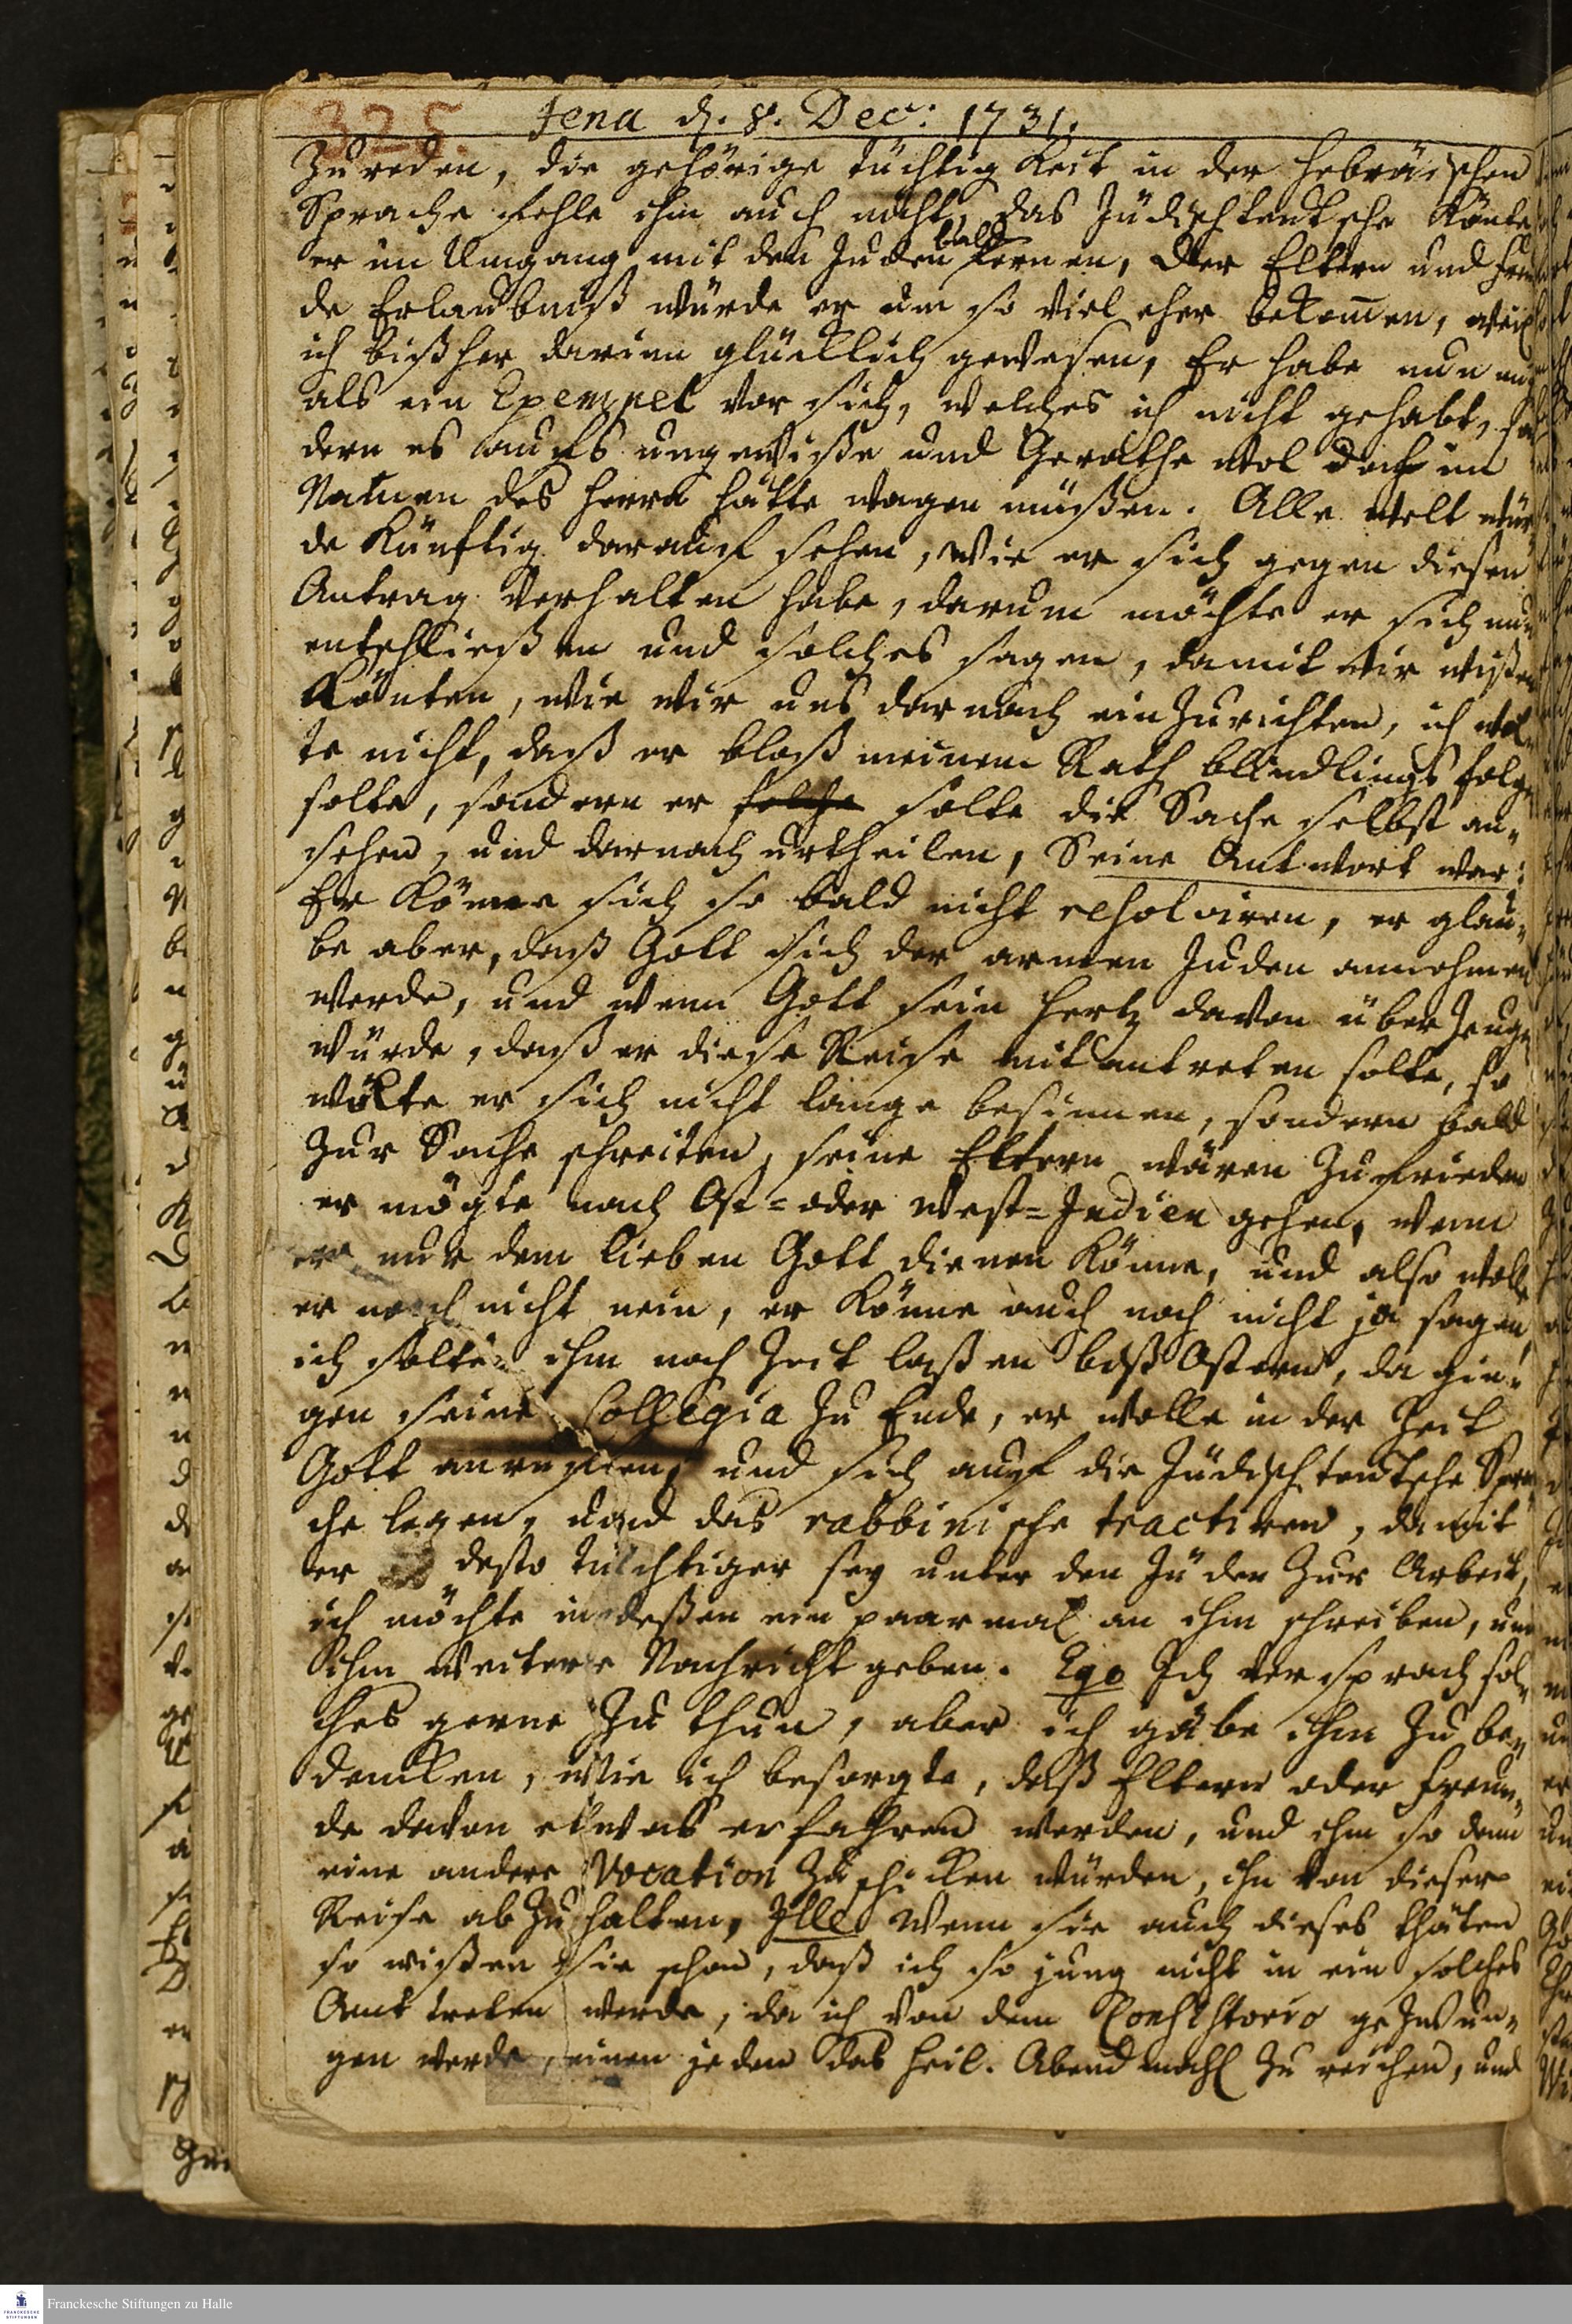 325.
Jena d. 8. Dec: 1731.
Zu reden, die gehörige tüchtigkeit in der Hebräischen
Sprache fehle ihm auch nicht, das Jüdischteutsche könte
bald
er im Umgang mit den Juden lernen, Der Eltern und Freun
de Erlaubniß würde er um so viel eher bekom̄en, weil
ich bißher darinn glücklich gewesen, Er habe nun mich
als ein Exempel vor sich, welches ich nicht gehabt, son
dern es auf's ungewiße und Gerathe wol doch im
Namen des Herrn hätte wagen müßen. Alle welt wür
de künftig darauf sehen, wie er sich gegen diesen
Antrag verhalten habe, darum möchte er sich nun
entschließen und solches sagen, damit wir wißen
könten, wie wir uns darnach einzurichten, ich wol-
te nicht, daß er bloß meinem Rath blindlings folgen
solte, sondern er solche solte die Sache selbst an-
sehen, und darnach urtheilen, Seine Antwort war:
Er könne sich so bald nicht resolviren, er glau-
be aber, daß Gott sich der armen Juden annehmen
werde, und wenn Gott sein Hertz davon überzeugen
würde, daß er diese Reise mit antreten solte, so
wolte er sich nicht lange besinnen, sondern bald
zur Sache schreiten, seine Eltern wären zufrieden
er mögte nach Ost- oder West-Indien gehen, wenn
er nur dem lieben Gott dienen könne, und also wolle
er noch nicht nein, er könne auch noch nicht ja sagen,
ich solte ihm noch Zeit laßen biß Ostern, da gin-
gen seine Collegia zu Ende, er wolle in der Zeit
Gott anruffen, und sich auf die Jüdischteutsche Spra
che legen, und das rabbinische tractiren, damit
er desto tüchtiger sey unter den Jüden zur Arbeit,
ich möchte indeßen ein paarmal an ihm schreiben, und
ihm weitere Nachricht geben. Ego Ich versprach sol-
ches gerne zu thun, aber ich gäbe ihm zu be-
dencken, wie ich besorgte, daß Eltern oder Freun-
de davon etwas erfahren werden, und ihm so denn
eine andere Vocation zuschicken würden, ihn von dieser
Reise abzuhalten, Ille Wenn sie auch dieses thäten
so wißen sie schon, daß ich so jung nicht in ein solches
Amt treten werde, da ich von dem Consistorio gezwun-
gen werde, einen jeden das heil. Abendmahl zu reichen, und
Franckesche Stiftungen zu Halle